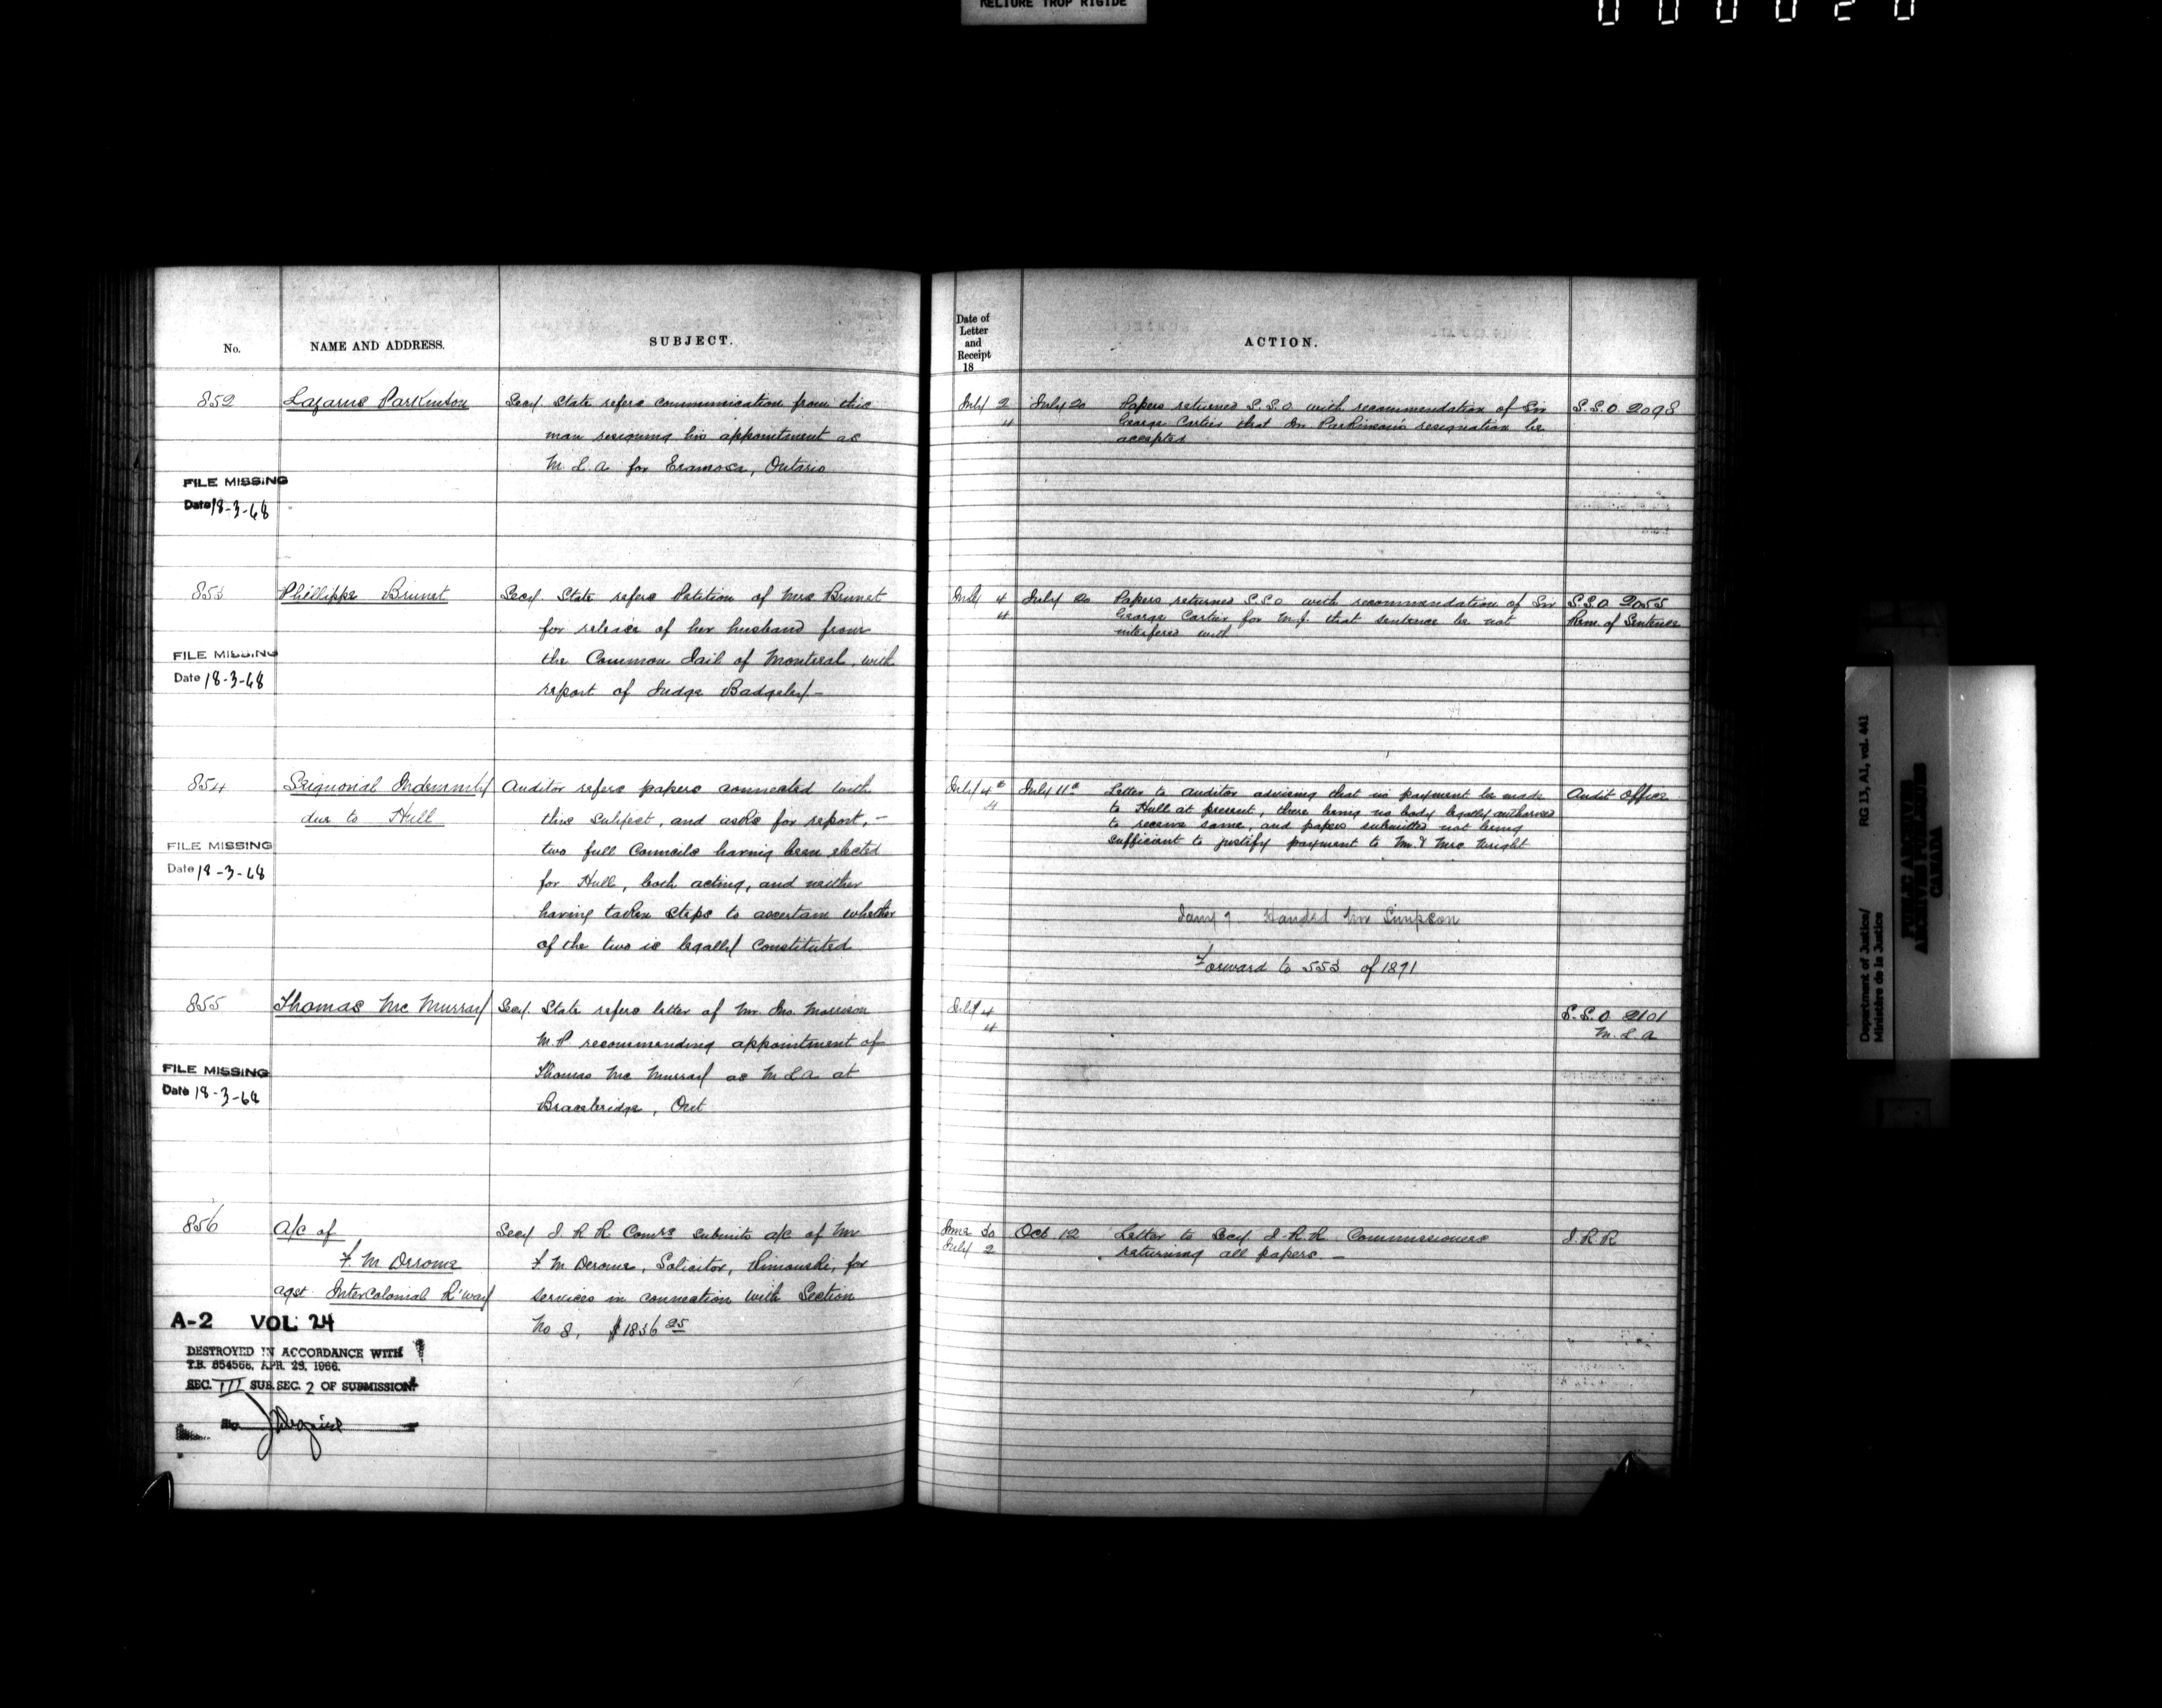 RELIURE TROP RIGIDE
0 0 0 0 2 0
No.
NAME AND ADDRESS.
SUBJECT.
Date of
Letter
and
Receipt
18
ACTION.
852
Lazarus Parkinson
Secy State refers communication from this
man resigning his appointment as
M. L. A for Eramosa, Ontario
FILE MISSING
Date 18-3-68
July 2
4
July 20
Papers returned S.S.O with recommendation of Sir
George Cartier that Dr Parkinson's resignation be
accepted
S.S.O. 2098
853
Phillippe Brunet
Secy State refers Petition of Mrs Brunet
for release of her husband from
the Common Jail of Montreal, with
report of Judge Badgley -
FILE MISSING
Date 18-3-68
July 4
4
July 20
Papers returned S.S.O with recommendation of Sir
George Cartier for M.J. that sentence be not
interfered with
S.S.O 2055
Rem. of Sentence
854
Seignorial Indemnity
due to Hull
Auditor refers papers connected with
this subject, and asks for report, -
two full Councils having been elected
for Hull, both acting, and neither
having taken steps to ascertain whether
of the two is legally constituted
FILE MISSING
Date 18-3-68
July 4th
4
July 11th
Letter to auditor advising that no payment be made
to Hull at present, there being no body legally authorised
to receive same, and papers submitted not being
sufficient to justify payment to Mr. & Mrs Wright
Audit Office
Jany 9 Handed Mr Simpson
Forward to 553 of 1871
855
Thomas Mc Murray
Secy. State refers letter of Mr. Jno. Morrison
M.P recommending appointment of
Thomas Mc Murray as M L A at
Bracebridge, Ont
FILE MISSING
Date 18-3-68
July 4
4
S.S.O 2101
M. L A
856
A/c of
F. M Derome
agst Intercolonial R'way
Secy I. R R Comrs submits a/c of Mr
F M Derome, Solicitor, Rimouski, for
services in connection with Section
No 8, $1836 25
June 30
July 2
Oct 12
Letter to Secy I.R.R. Commissioners
returning all papers -
I.R R
A-2 VOL 24
DESTROYED IN ACCORDANCE WITH
T.B. 654566, APR. 29, 1966.
SEC. III SUB.SEC. 2 OF SUBMISSION
Department of Justice/
Ministère de la Justice
RG 13, A1, vol. 441
PUBLIC ARCHIVES
ARCHIVES PUBLIQUES
CANADA